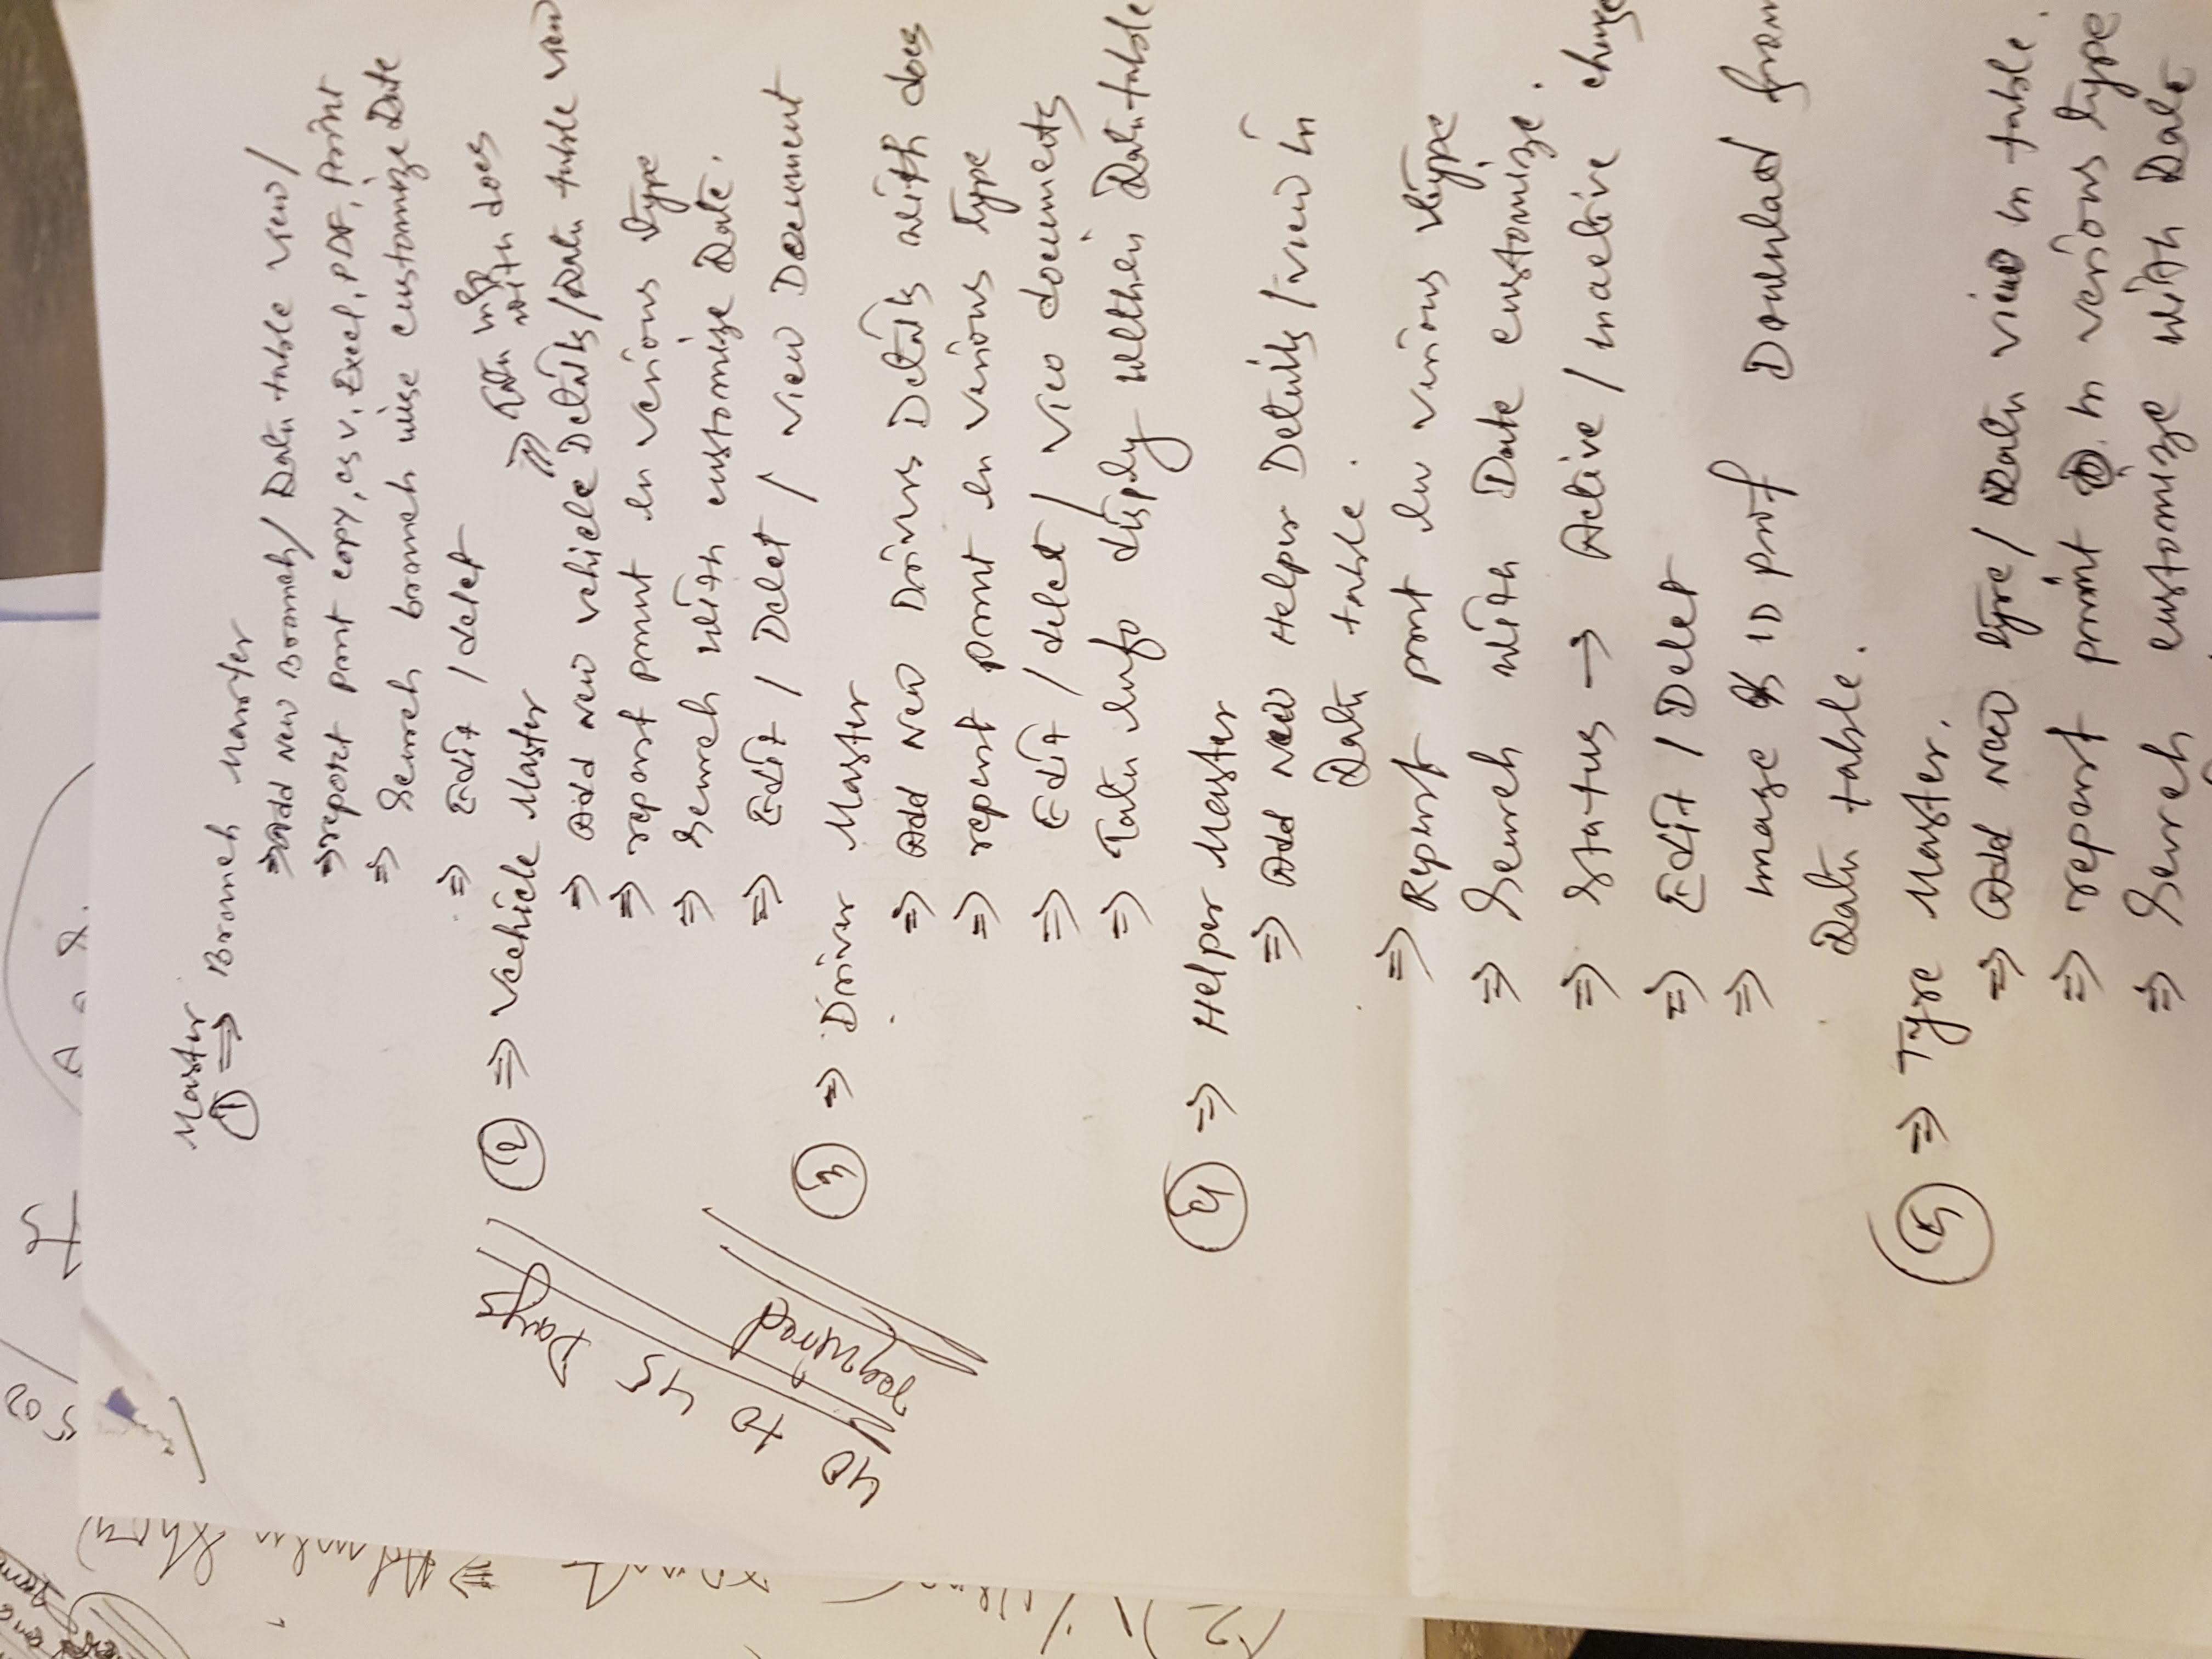 500
Master
① ⇒ Branch Master
⇒ Add New Branch / Data table view /
⇒ report print copy, csv, Excel, PDF, Print
⇒ Search branch wise customize Date
⇒ Edit / delet
② ⇒ Vechicle Master
⇒ Tatu info with docs
⇒ Add New vehicle Details / Data table view
⇒ report print in verious type
⇒ Search with customize Date.
⇒ Edit / Delet / view Document
40 to 45 Days
required
③ ⇒ Driver Master
⇒ Add New Drivers Details with docs
⇒ report print in verious type
⇒ Edit / delet / view documents
⇒ Tatu info disply within Data table
④ ⇒ Helper Master
⇒ Add New Helper Details / view in
Data table.
⇒ Report print in verious type
⇒ Search with Date customize.
⇒ Status → Active / inactive
⇒ Edit / Delet
⇒ image & ID prof Download from
Data table.
⑤ ⇒ Tyre Master.
⇒ Add New tyre / Data view in table.
⇒ report print in verious type
⇒ Search customize with Date